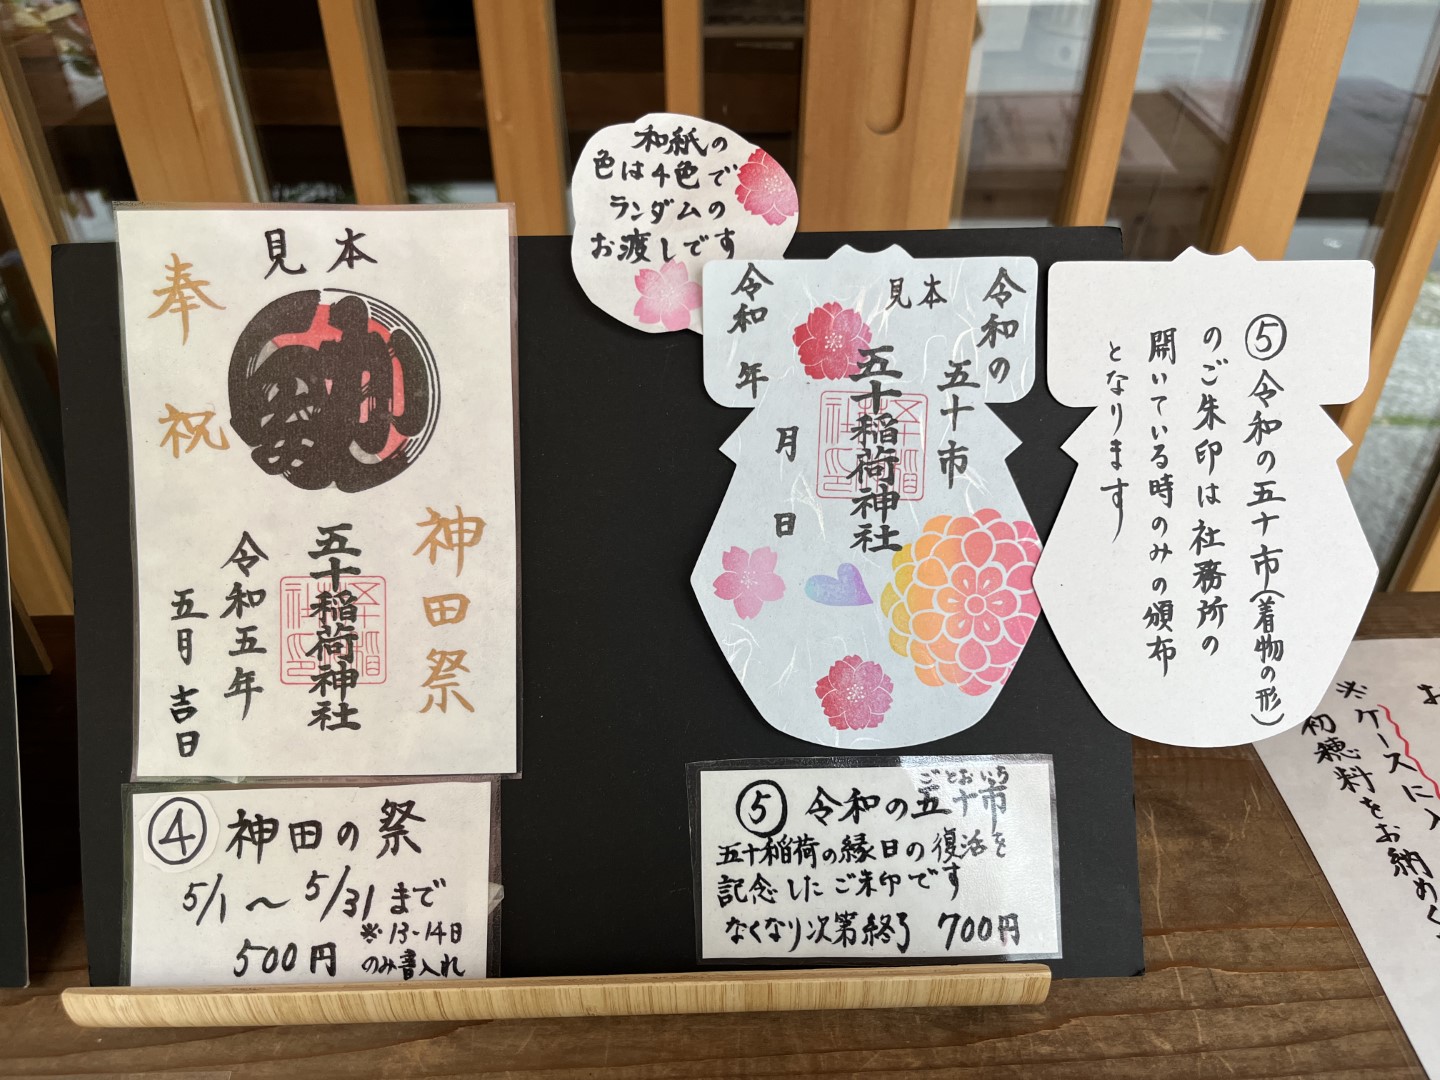 見本
奉祝
神田祭
五十稲荷神社
令和五年
五月吉日
④ 神田の祭
5/1〜5/31まで
※13-14日
のみ書入れ
500円
和紙の
色は4色で
ランダムの
お渡しです
見本
令和の
五十市
五十稲荷神社
令和 年
月 日
⑤ 令和の五十市
ごとおいち
五十稲荷の縁日の復活を
記念したご朱印です
なくなり次第終了 700円
⑤令和の五十市(着物の形)
のご朱印は社務所の
開いている時のみの頒布
となります
お
※ケースに入
初穂料をお納めく